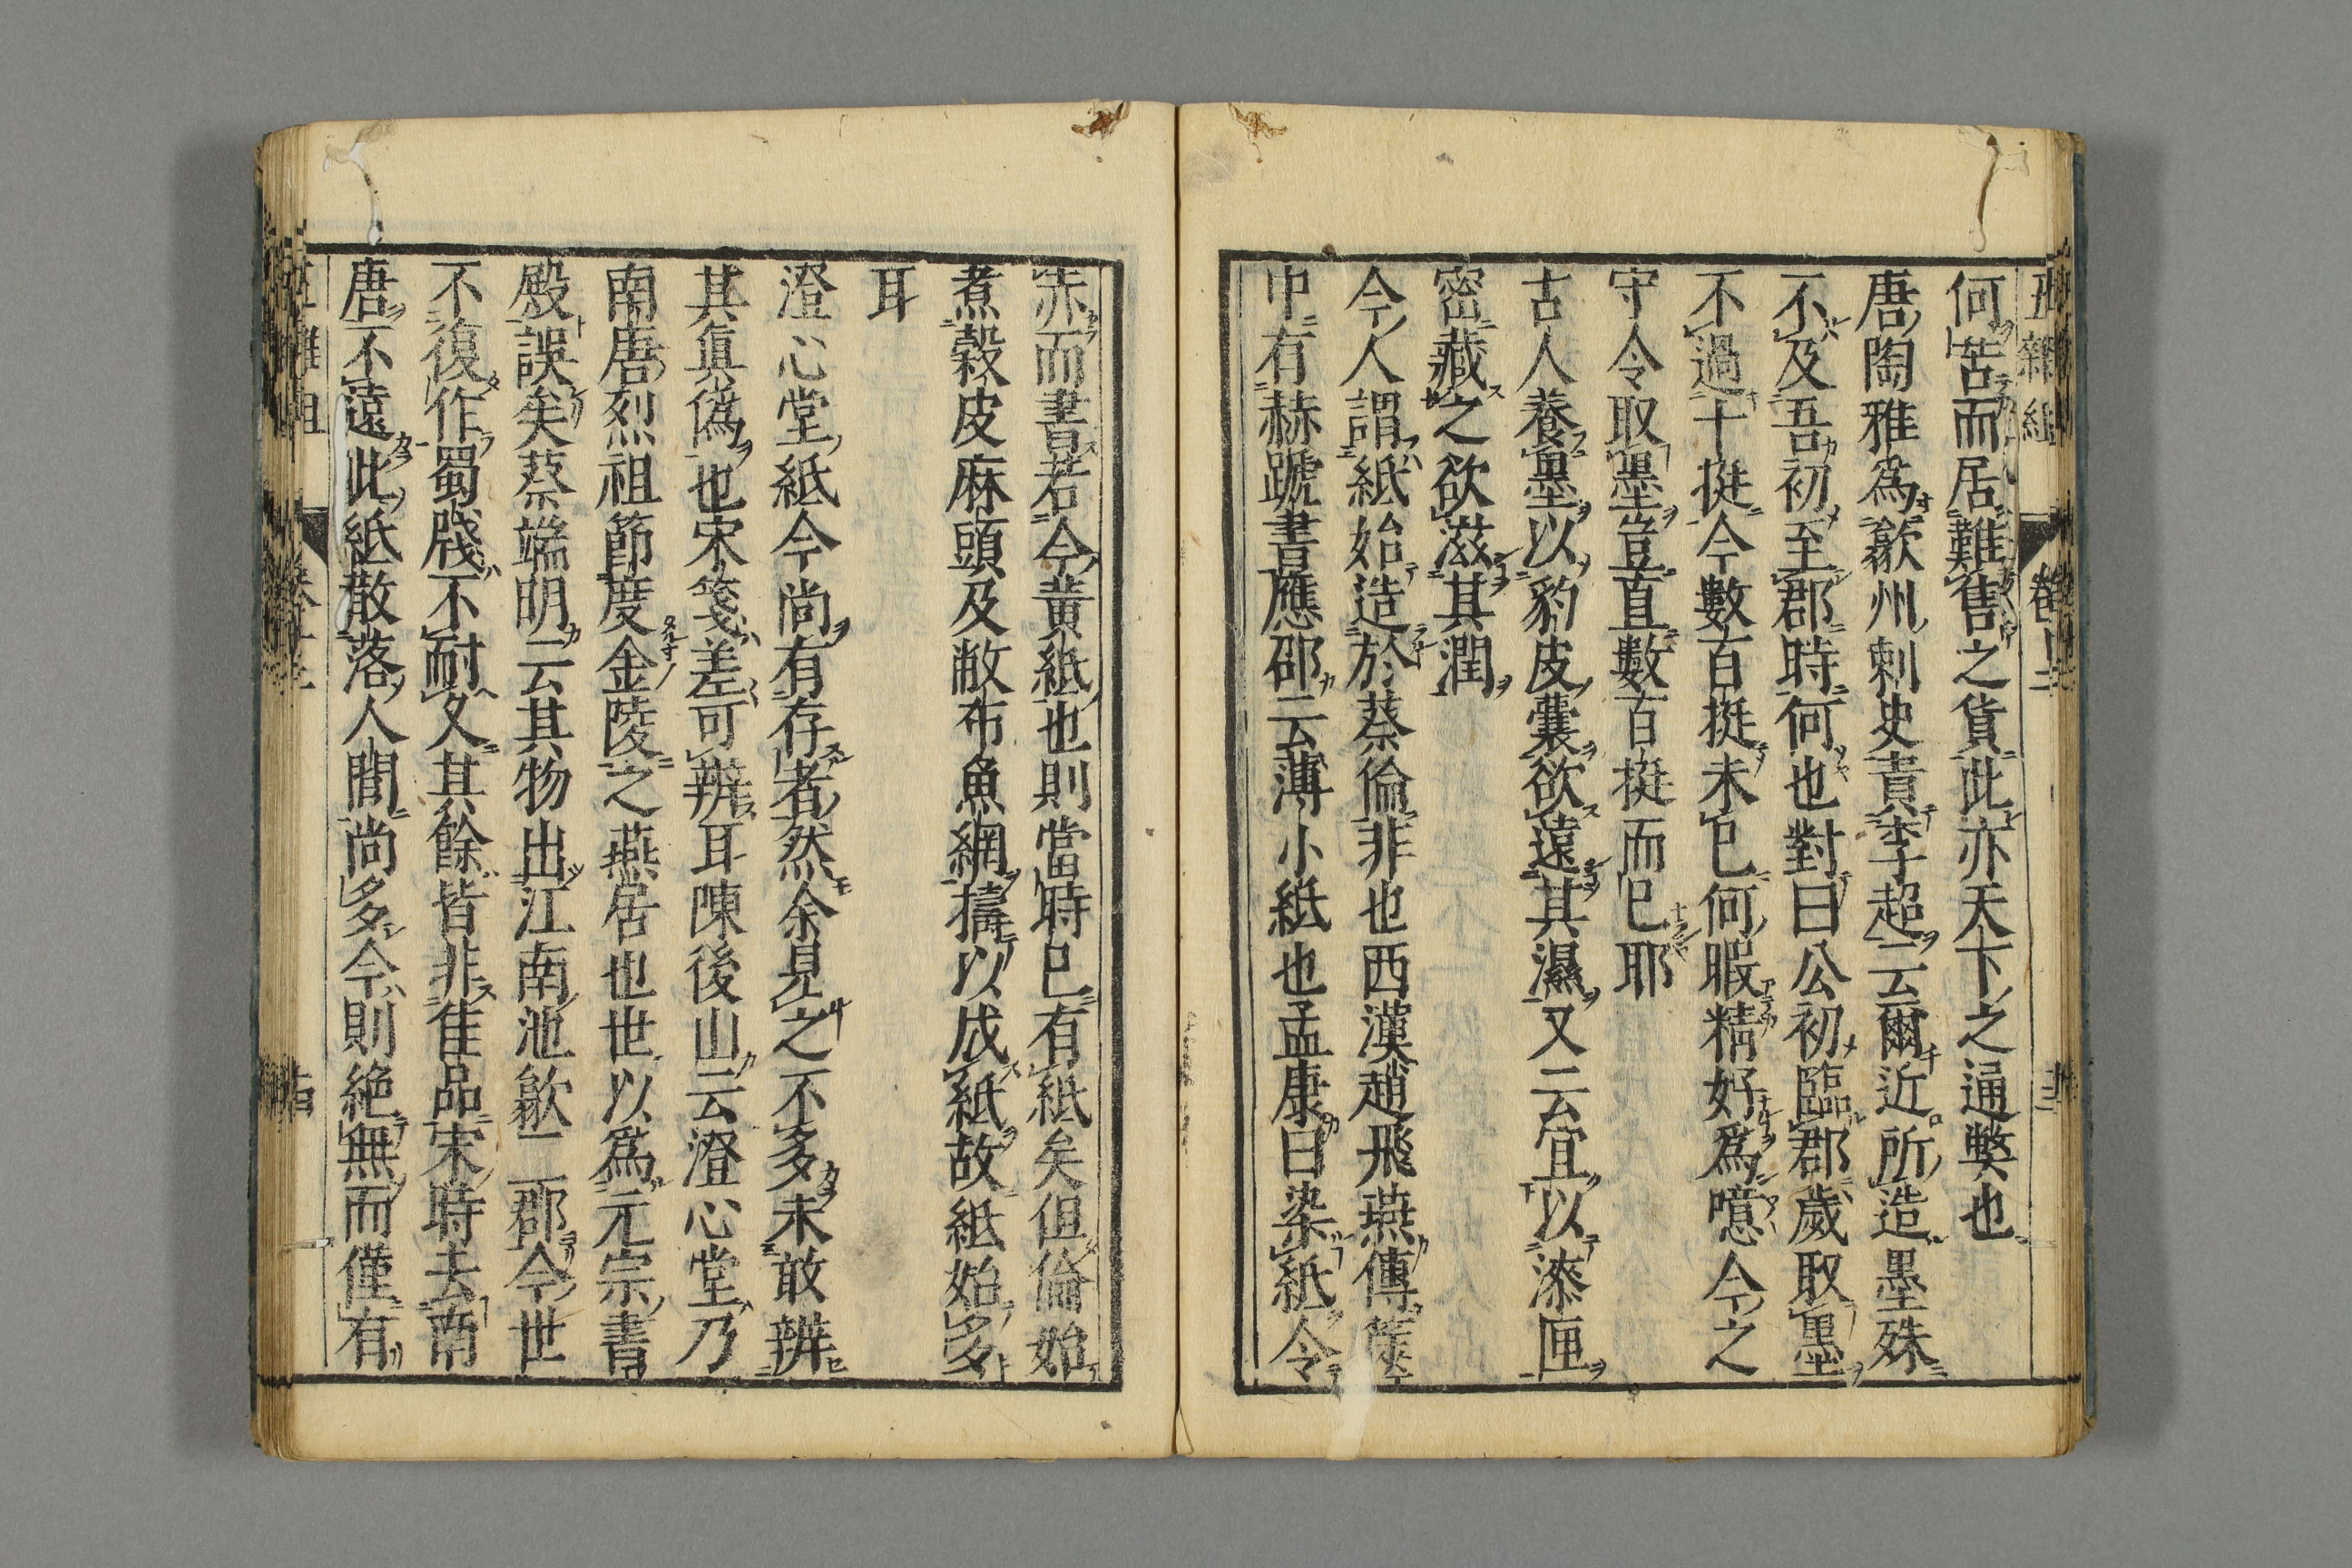 五雜組 卷十二
何苦而居難售之貨此亦天下之通弊也
唐陶雅爲歙州刺史責李超云爾近所造墨殊
不及吾初至郡時何也對曰公初臨郡歲取墨
不過十挺今數百挺未已何暇精好爲噫今之
守令取墨豈直數百挺而已耶
古人養墨以豹皮囊欲遠其濕又云宜以漆匣
密藏之欲滋其潤
今人謂紙始造於蔡倫非也西漢趙飛燕傳篋
中有赫蹏書應邵云薄小紙也孟康曰染紙令
赤而書若今黃紙也則當時已有紙矣但倫始
煮穀皮麻頭及敝布魚網擣以成紙故紙始多
耳
澄心堂紙今尚有存者然余見之不多未敢辨
其眞僞也宋箋差可辨耳陳後山云澄心堂乃
南唐烈祖節度金陵之燕居也世以爲元宗書
殿誤矣蔡端明云其物出江南池歙二郡今世
不復作蜀牋不耐久其餘皆非佳品宋時去南
唐不遠此紙散落人間尚多今則絶無而僅有